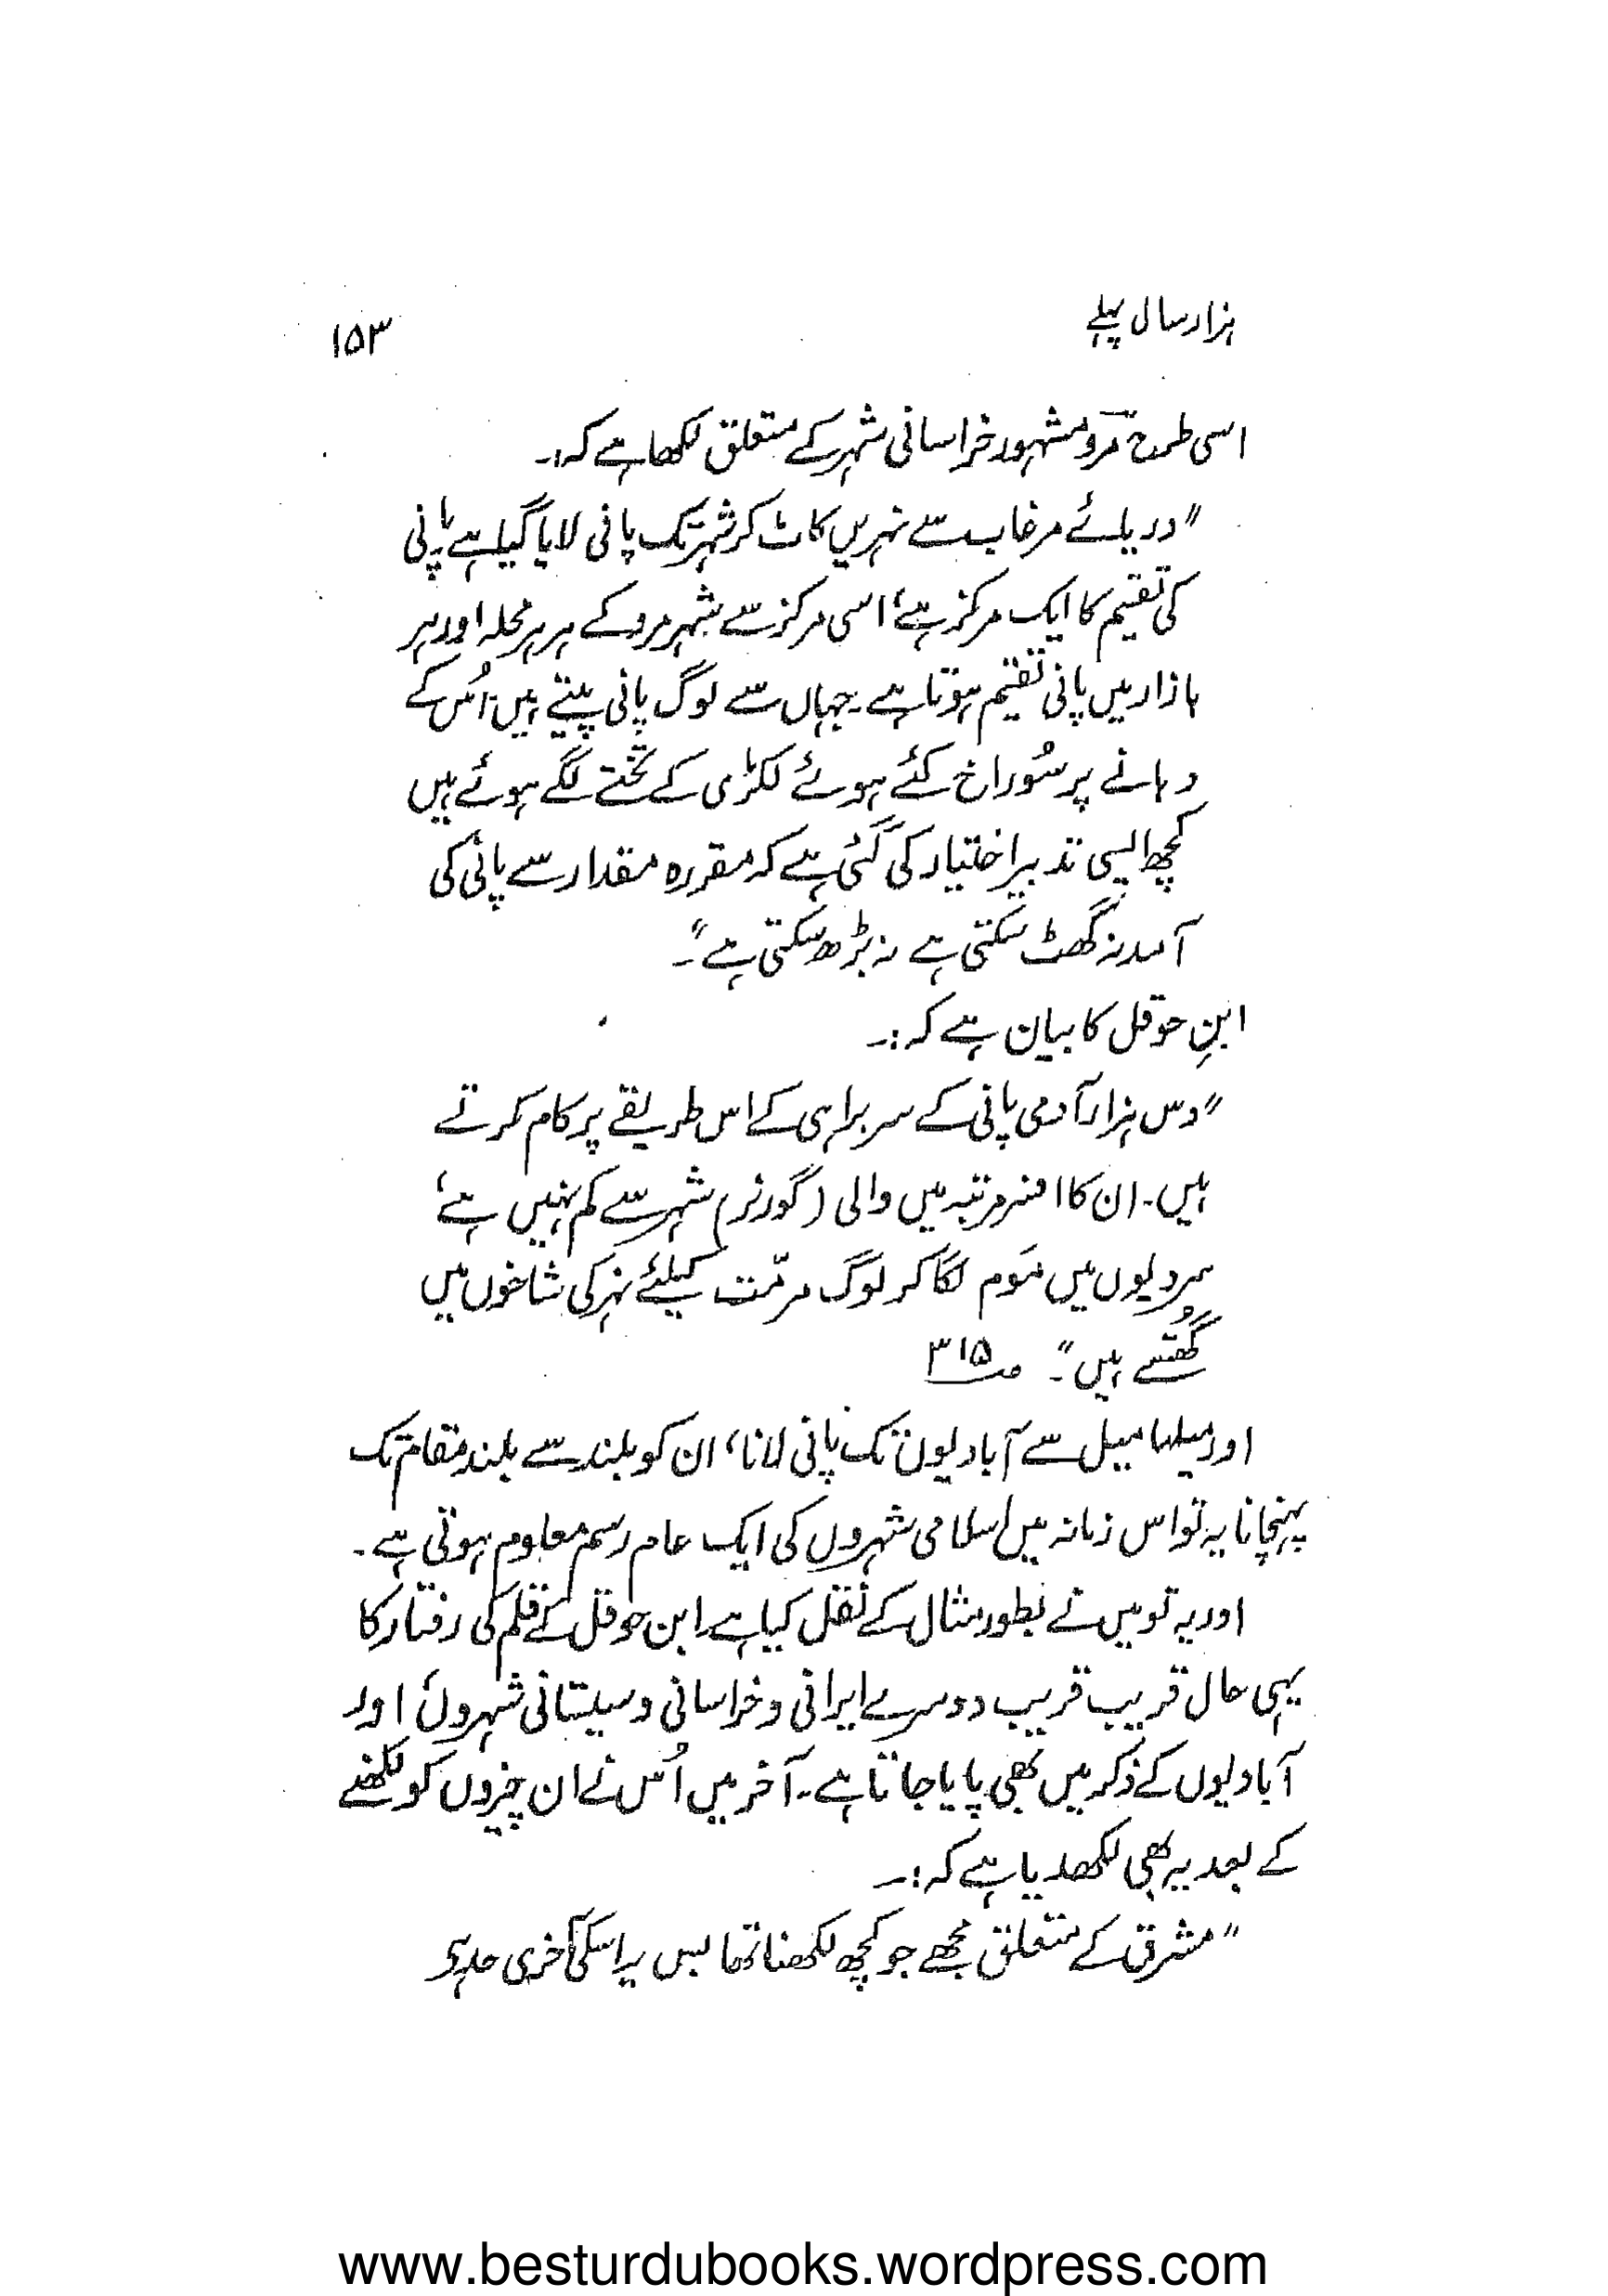 ہزار سال پہلے
۱۵۳
اسی طرح مرو مشہور خراسانی شہر کے متعلق لکھا ہے کہ:۔
"دریائے مرغاب سے نہریں کاٹ کر شہر تک پانی لایا گیا ہے پانی
کی تقیم کا ایک مرکز ہے، اسی مرکز سے شہر مرو کے ہر ہر محلہ اور ہر
بازار میں پانی تقیم ہوتا ہے۔ جہاں سے لوگ پانی پیتے ہیں، اُس کے
دہانے پر سُوراخ کئے ہوئے لکڑی کے تختے لگے ہوئے ہیں
کچھ ایسی تدبیر اختیار کی گئی ہے کہ مقررہ مقدار سے پانی کی
آمد نہ گھٹ سکتی ہے نہ بڑھ سکتی ہے"۔
ابنِ حوقل کا بیان ہے کہ:۔
"دس ہزار آدمی پانی کے سربراہی کے اس طریقے پر کام کرتے
ہیں۔ ان کا افسر مرتبہ میں والی (گورنر) شہر سے کم نہیں ہے،
سردیوں میں مَوم لگا کر لوگ مرمّت کیلئے نہر کی شاخوں میں
گُھستے ہیں"۔ ص۳۱۵
اور میلہا میل سے آبادیوں تک پانی لانا، ان کو بلند سے بلند مقام تک
پہنچانا یہ تو اس زمانہ میں اسلامی شہروں کی ایک عام رسم معلوم ہوتی ہے۔
اور یہ تو میں نے بطور مثال کے نقل کیا ہے۔ ابن حوقل کے قلم کی رفتار کا
یہی حال قریب قریب دوسرے ایرانی و خراسانی و سیستانی شہروں، اور
آبادیوں کے ذکر میں بھی پایا جاتا ہے۔ آخر میں اُس نے ان چیزوں کو لکھنے
کے بعد یہ بھی لکھدیا ہے کہ:۔
"مشرق کے متعلق مجھے جو کچھ لکھنا تھا بس یہ اسکی آخری حد ہے
www.besturdubooks.wordpress.com